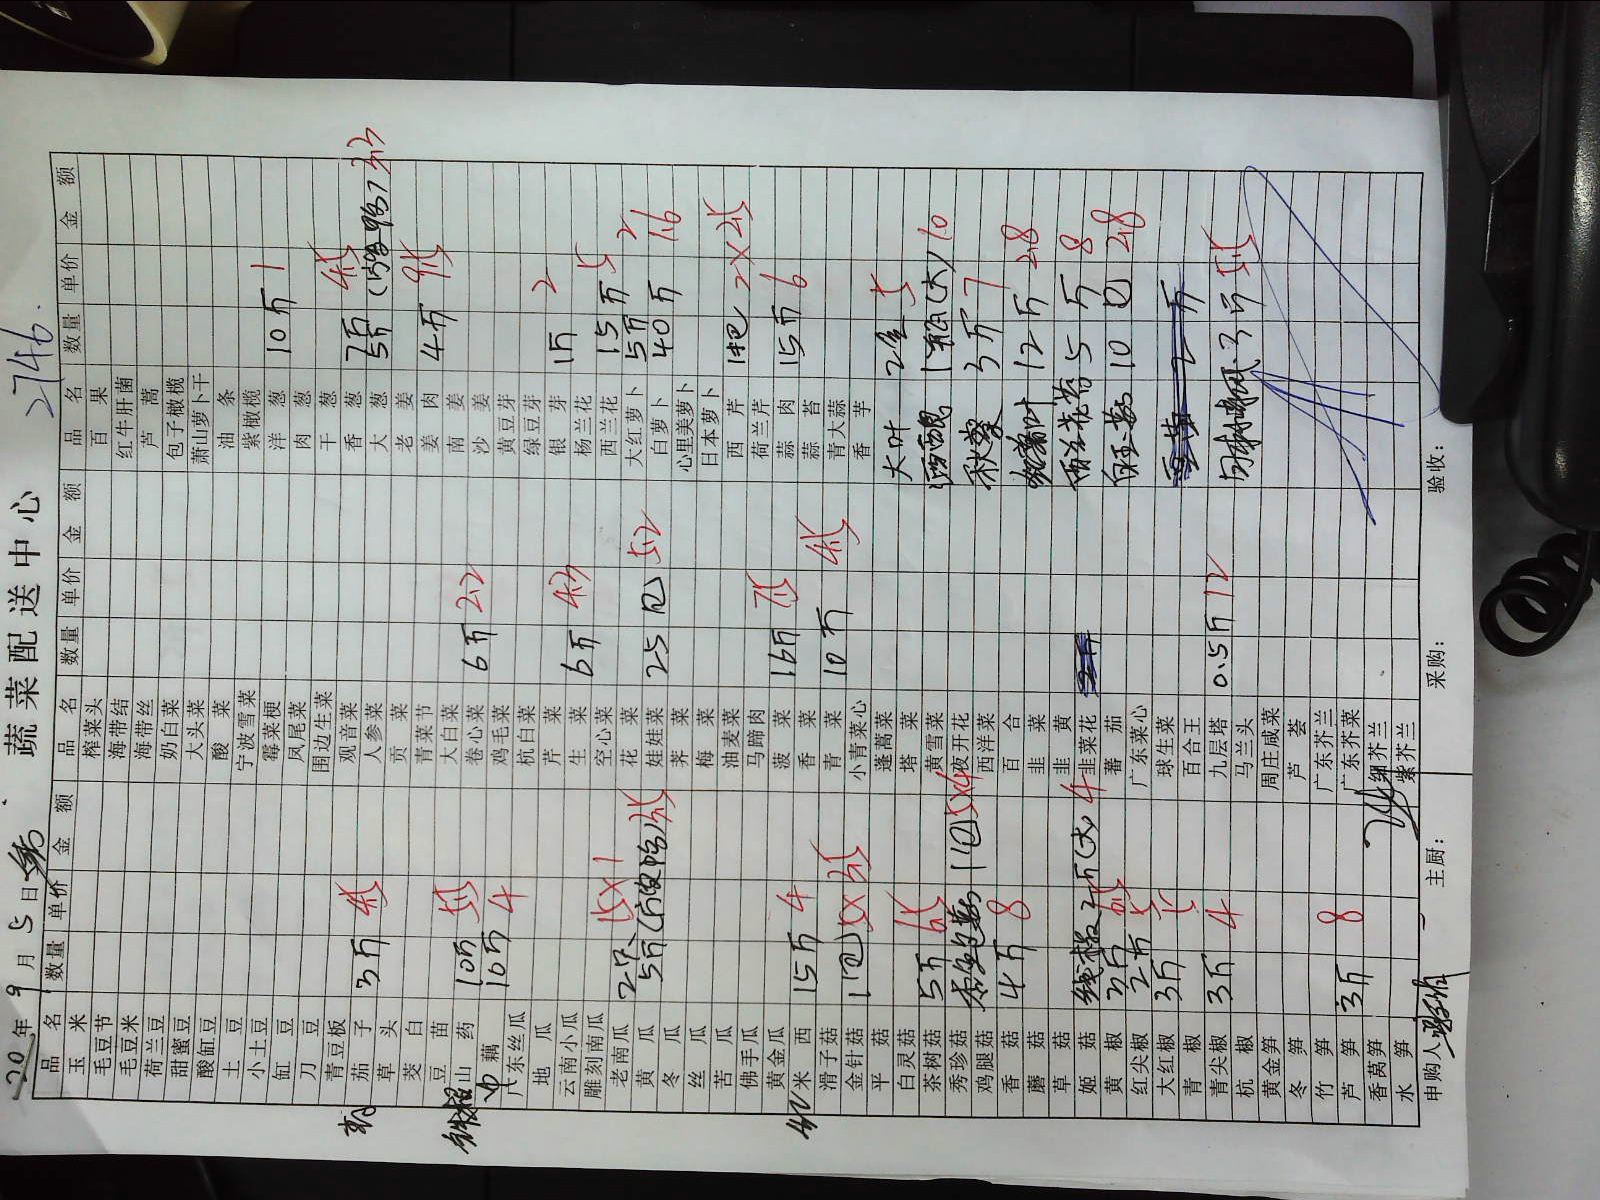 蔬菜配送中心
2746.
20 年 9 月 5 日
品名 数量 单价 金额 品名 数量 单价 金额 品名 数量 单价 金额
玉米 榨菜头 百果
毛豆节 海带结 红牛肝菌
毛豆米 海带丝 芦蒿
荷兰豆 奶白菜 包子橄榄
甜蜜豆 大头菜 萧山萝卜干
酸缸豆 酸菜 油条
土豆 宁波雪菜 紫橄榄
小土豆 霉菜梗 洋葱 10斤 1
缸豆 凤尾菜 肉葱
刀豆 围边生菜 干葱
青豆板 观音菜 香葱 4.5
茄子 3斤 4.5 人参菜 大葱 5斤 3.3
草头 贡菜 老姜
茭白 青菜节 姜肉 4斤 9.5
豆苗 大白菜 南姜
山药 10斤 5.5 卷心菜 6斤 2.2 沙姜
藕 10斤 4 鸡毛菜 黄豆芽
广东丝瓜 杭白菜 绿豆芽
地瓜 芹菜 银芽 1斤 2
云南小瓜 生菜 6斤 4.3 杨兰花
雕刻南瓜 空心菜 西兰花 15斤 5
老南瓜 2只 15×1 花菜 大红萝卜 5斤 2
黄瓜 5斤 3.5 娃娃菜 25包 5.2 白萝卜 40斤 1.6
冬瓜 荠菜 心里美萝卜
丝瓜 梅菜 日本萝卜
苦瓜 油麦菜 西芹 1把 2×2.5
佛手瓜 马蹄肉 荷兰芹
黄金瓜 菠菜 16斤 7.5 蒜肉 15斤 6
西米 15斤 4 香菜 蒜苔
滑子菇 青菜 10斤 4.5 青大蒜
金针菇 1包 5×3.5 小青菜心 香芋
平菇 蓬蒿菜 大叶 2盒 5
白灵菇 塔菜
茶树菇 5斤 6.5 黄雪菜 (大) 10
秀珍菇 1包 5×4 夜开花 秋葵 3斤 7
鸡腿菇 西洋菜
香菇 4斤 8 百合 12斤 2.8
蘑菇 韭菜
草菇 韭黄 5斤 8
姬菇 线椒 2斤(大) 4 韭菜花
黄椒 2斤 蕃茄 白玉菇 10包 2.8
红尖椒 2斤 广东菜心
大红椒 3斤 5 球生菜
青椒 百合王
青尖椒 3斤 4 九层塔 0.5斤 12 3斤 5.5
杭椒 马兰头
黄金笋 周庄咸菜
冬笋 芦荟
竹笋 广东芥兰
芦笋 3斤 8 广东芥菜
香莴笋 细芥兰
水笋 紫芥兰
申购人: 主厨: 采购: 验收: